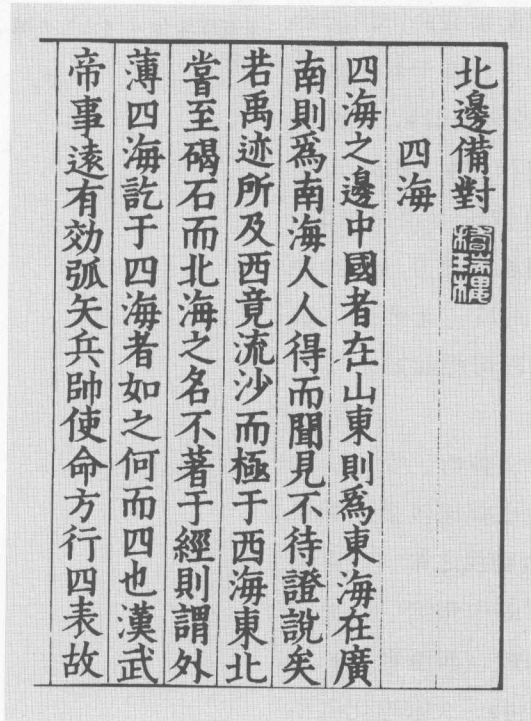 北邊備對
四海
四海之邊中國者在山東則爲東海在廣
南則爲南海人人得而聞見不待證說矣
若禹迹所及西竟流沙而極于西海東北
嘗至碣石而北海之名不著于經則謂外
薄四海訖于四海者如之何而四也漢武
帝事遠有効弧矢兵帥使命方行四表故